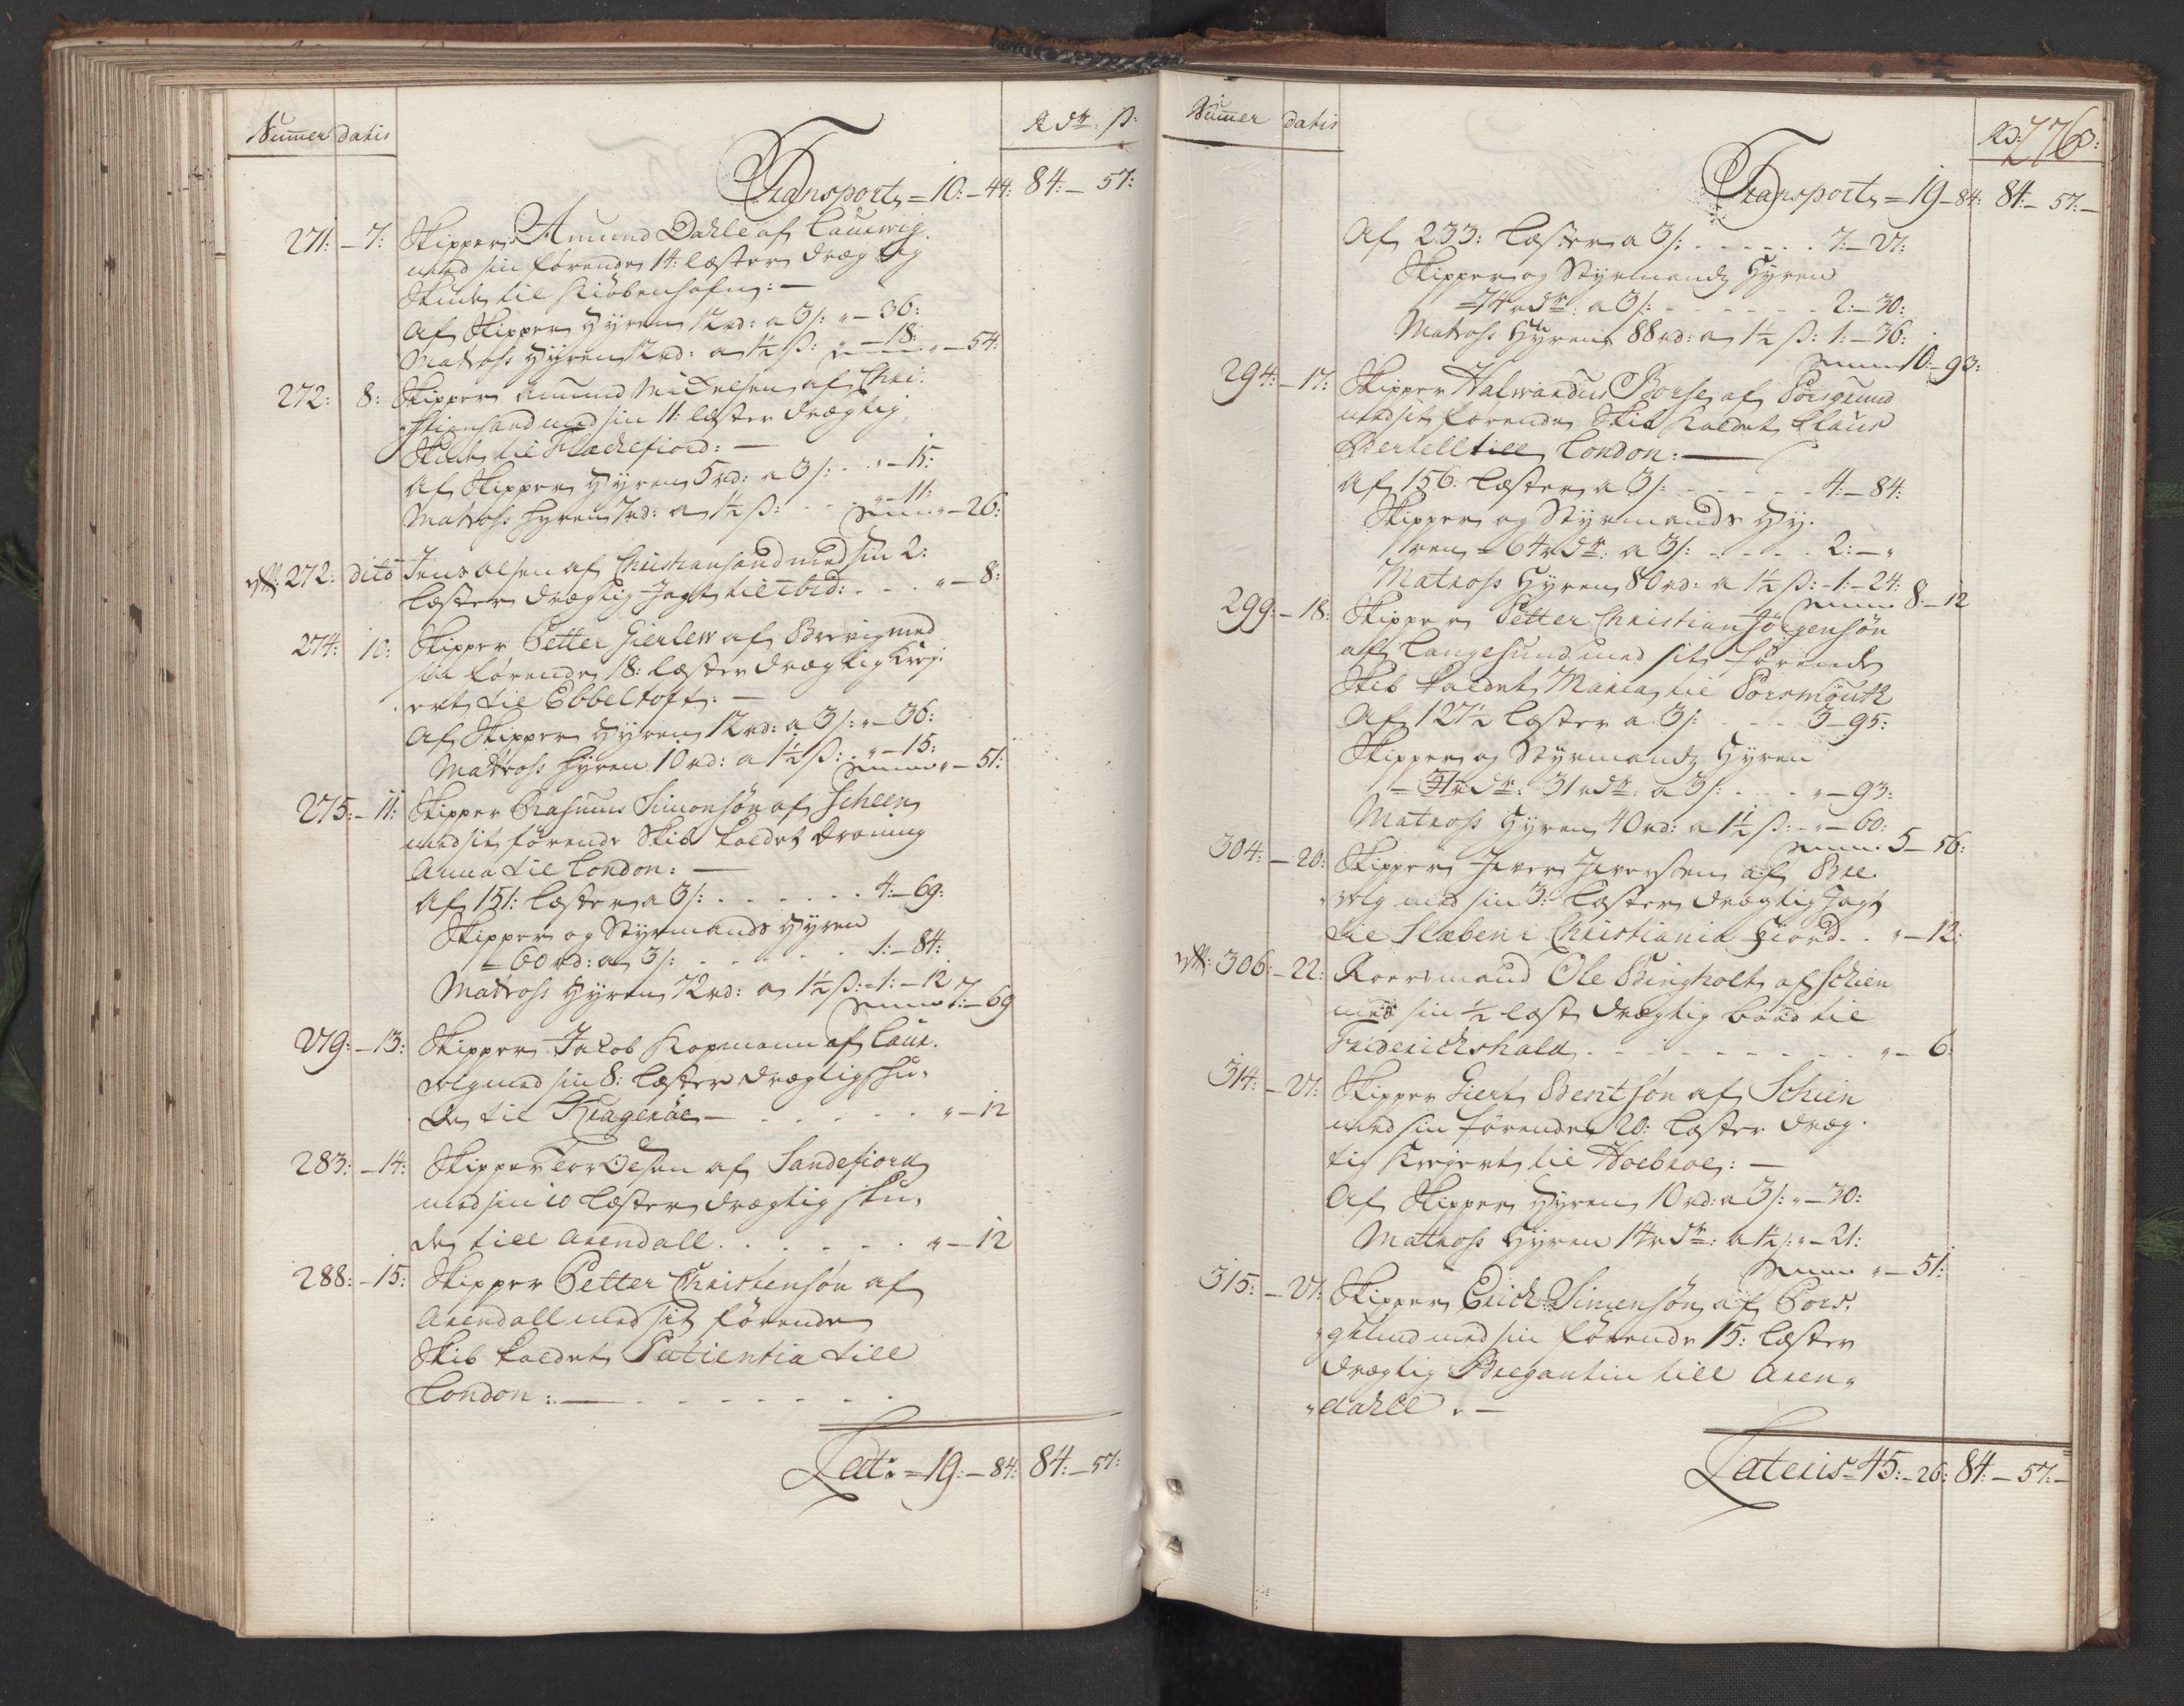 Numer datis Rdr: ß:
Transport = 10: – 44: 84: – 57:
271: – 7: Skipper Amund Dahle af Laurvig
med sin førende 14: læster drægtig
Skude til Kiøbenhafn: –
Af Skipper Hyren 12 rd: a 3/: " – 36:
Matross Hyren 12 rd: a 1½ ß: " – 18:
Summa " – 54:
272: 8: Skipper Amund Mickelsen af Chri-
stiansand med sin 11: læster drægtig
Skude til Fladefiord: –
Af Skipper Hyren 5 rd: a 3/: . . " – 15:
Matross Hyren 7 rd: a 1½ ß: . . " – 11:
Summa " – 26:
272: dito Jens Olsen af Christiansand med sin 2:
læster drægtig Jagt til ibid: . . . " – 8:
274: 10: Skipper Petter Gierlew af Brevig med
sin førende 18: læster drægtig Krej-
ert til Ebbeltoft: –
Af Skipper Hyren 12 rd: a 3/: " – 36:
Matross Hyren 10 rd: a 1½ ß: . " – 15:
Summa " – 51:
275: – 11: Skipper Rasmus Simonsøn af Scheen
med sit førende Skib kaldet Droning
Anna til London: –
Af 151: læster a 3/: . . . . . . 4: – 69:
Skipper og Styrmands Hyren
= 60 rd: a 3/: . . . . . . 1: – 84:
Matross Hyren 72 rd: a 1½ ß: = 1: – 12
Summa 7: – 69
279: – 13: Skipper Jacob Kopmann af Laur-
velg med sin 8: læster drægtig Sku-
de til Kragerøe – . . . . . " – 12
283: – 14: Skipper Tor Olsen af Sandefiord
med sin 10 læster drægtig Sku-
de till Arendall . . . . . . " – 12
288: – 15: Skipper Petter Christensøn af
Arendall med sit førende
Skib kaldet Patientia till
London: – . . . . . .
Lat: = 19: – 84: 84: – 57:
Numer datis Rd: 276 ß:
Transport = 19 – 84: 84: – 57: –
Af 233: læster a 3/: . . . . . . 7: – 27:
Skipper og Styrmands Hyren
= 74 rdr: a 3/: . . . . . . 2: – 30:
Matross Hyren 88 rd: a 1½ ß: 1: – 36:
Summa 10: – 93:
294: – 17: Skipper Halwardus Boese af Porsgrund
med sit førende Skib kaldet Claus
Bertell till London: –
Af 156: læster a 3/: . . . . . 4: – 84:
Skipper og Styrmands Hy-
ren = 64 rdr: a 3/: . . . . 2: – "
Matross Hyren 80 rd: a 1½ ß: – 1: – 24:
Summa 8: – 12
299: – 18: Skipper Petter Christian Jørgensøn
af Langesund med sit førende
Skib kaldet Maria til Porsmouth
Af 127½ læster a 3/: . . . 3 – 95:
Skipper og Styrmands Hyren
– 31 rdr: 31 rdr: a 3/: . . . " – 93:
Matross Hyren 40 rd: a 1½ ß: – " – 60:
Summa 5 – 56:
304: – 20: Skipper Iver Iversøn af Bre-
velg med sin 3: læster drægtig Jagt
til Slæben i Christiania Fiord . . " – 12:
306: – 22: Roersmand Ole Bingholt af Schien
med sin ½ læst drægtig baad til
Friderichshald . . . . . . . . . " – 6:
314: – 27: Skipper Giert Beritsøn af Schien
med sin førende 20: læster dræg-
tig Krejert til Hoebroe: –
Af Skipper Hyren 10 rd: a 3/: " – 30:
Matross Hyren 14 rdr: a 1½ /: " – 21:
Summa " – 51:
315: – 27: Skipper Erich Simensøn af Pors-
grund med sin førende 15: læster
drægtig Bregantin till Aren-
dahll . –
Lateris = 45: – 26: 84: – 57: –